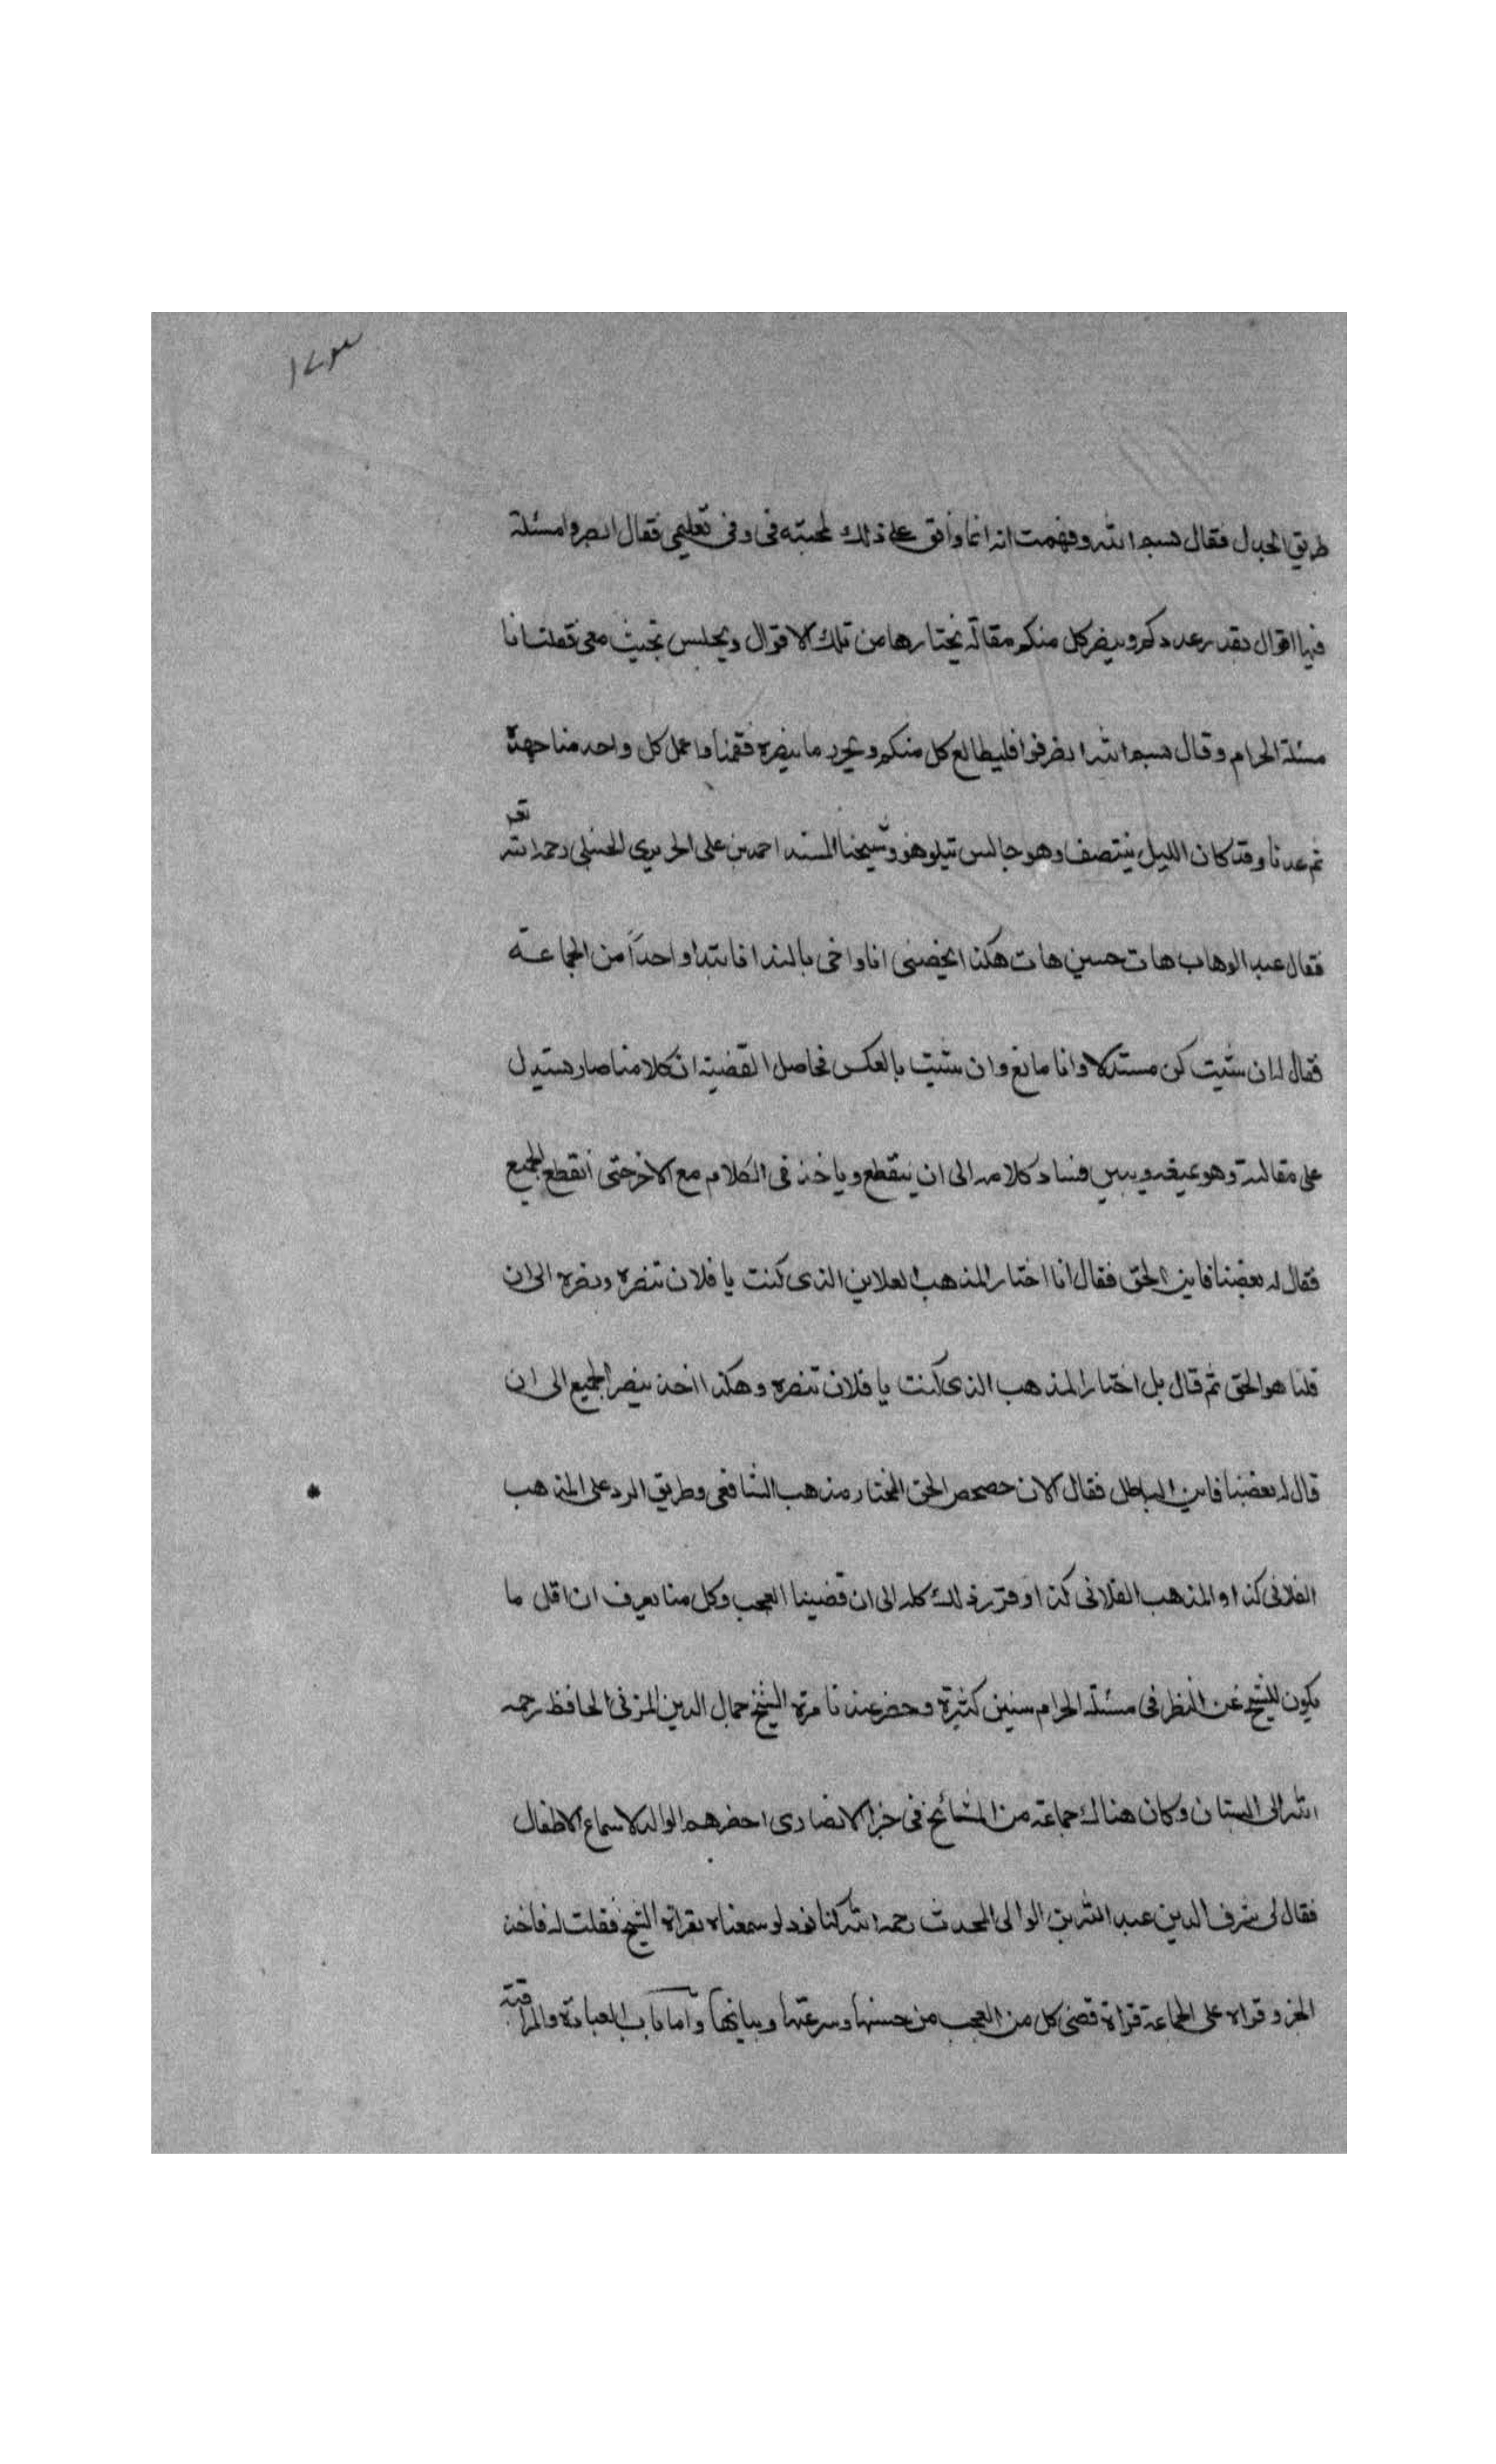 ١٧٣
طريق الجدل فقال بسم الله وفهمت انه انما وافق على ذلك لمحبته في وفي تعليمي فقال ابصروا مسئلة
فيها اقوال بقدر عددكم وينصر كل منكم مقالة يختارها من تلك الاقوال ويجلس يبحث معي فقلت انا
مسئلة الحرام وقال بسم الله انصرفوا فليطالع كل منكم ويحرر ما ينصره فقمنا واعمل كل واحد منا جهده
ثم عدنا وقد كان الليل ينتصف وهو جالس يتلو هو وشيخنا المسند احمد بن علي الحريري الحنبلي رحمه الله تعه
فقال عبد الوهاب هات حسين هات هكذا يخصني انا واخي بالندا فابتدا واحداً من الجماعة
فقال له ان شيت كن مستدلا وانا مانع وان شيت بالعكس فحاصل القضية ان كلا منا صار يستدل
على مقالته وهو يمنعه ويبين فساد كلامه الى ان ينقطع وياخذ في الكلام مع الاخر حتى انقطع الجميع
فقال له بعضنا فاين الحق فقال انا اختار المذهب الفلاني الذي كنت يا فلان تنصره ونصره الى ان
قلنا هو الحق ثم قال بل اختار المذهب الذي كنت يا فلان تنصره وهكذا اخذ ينصر الجميع الى ان
قال له بعضنا فاين الباطل فقال الان حصحص الحق المختار مذهب الشافعي وطريق الرد على المذهب
الفلاني كذا والمذهب الفلاني كذا وقرر ذلك كله الى ان قضينا العجب وكل منا يعرف ان اقل ما
يكون للشيخ عن النظر في مسئلة الحرام سنين كثيرة وحضر عندنا مرة الشيخ جمال الدين المزني الحافظ رحمه
الله الى البستان وكان هناك جماعة من المشائخ في جزا الانصاري احضرهم الوالد لاسماع الاطفال
فقال لي شرف الدين عبد الله بن الوالي المحدث رحمه الله كنا نود لو سمعناه بقراة الشيخ فقلت له فاخذ
الجز وقراه على الجماعة قراة قضى كل من العجب من حسنها وسرعتها وبيانها واما باب العبادة والمراقبة